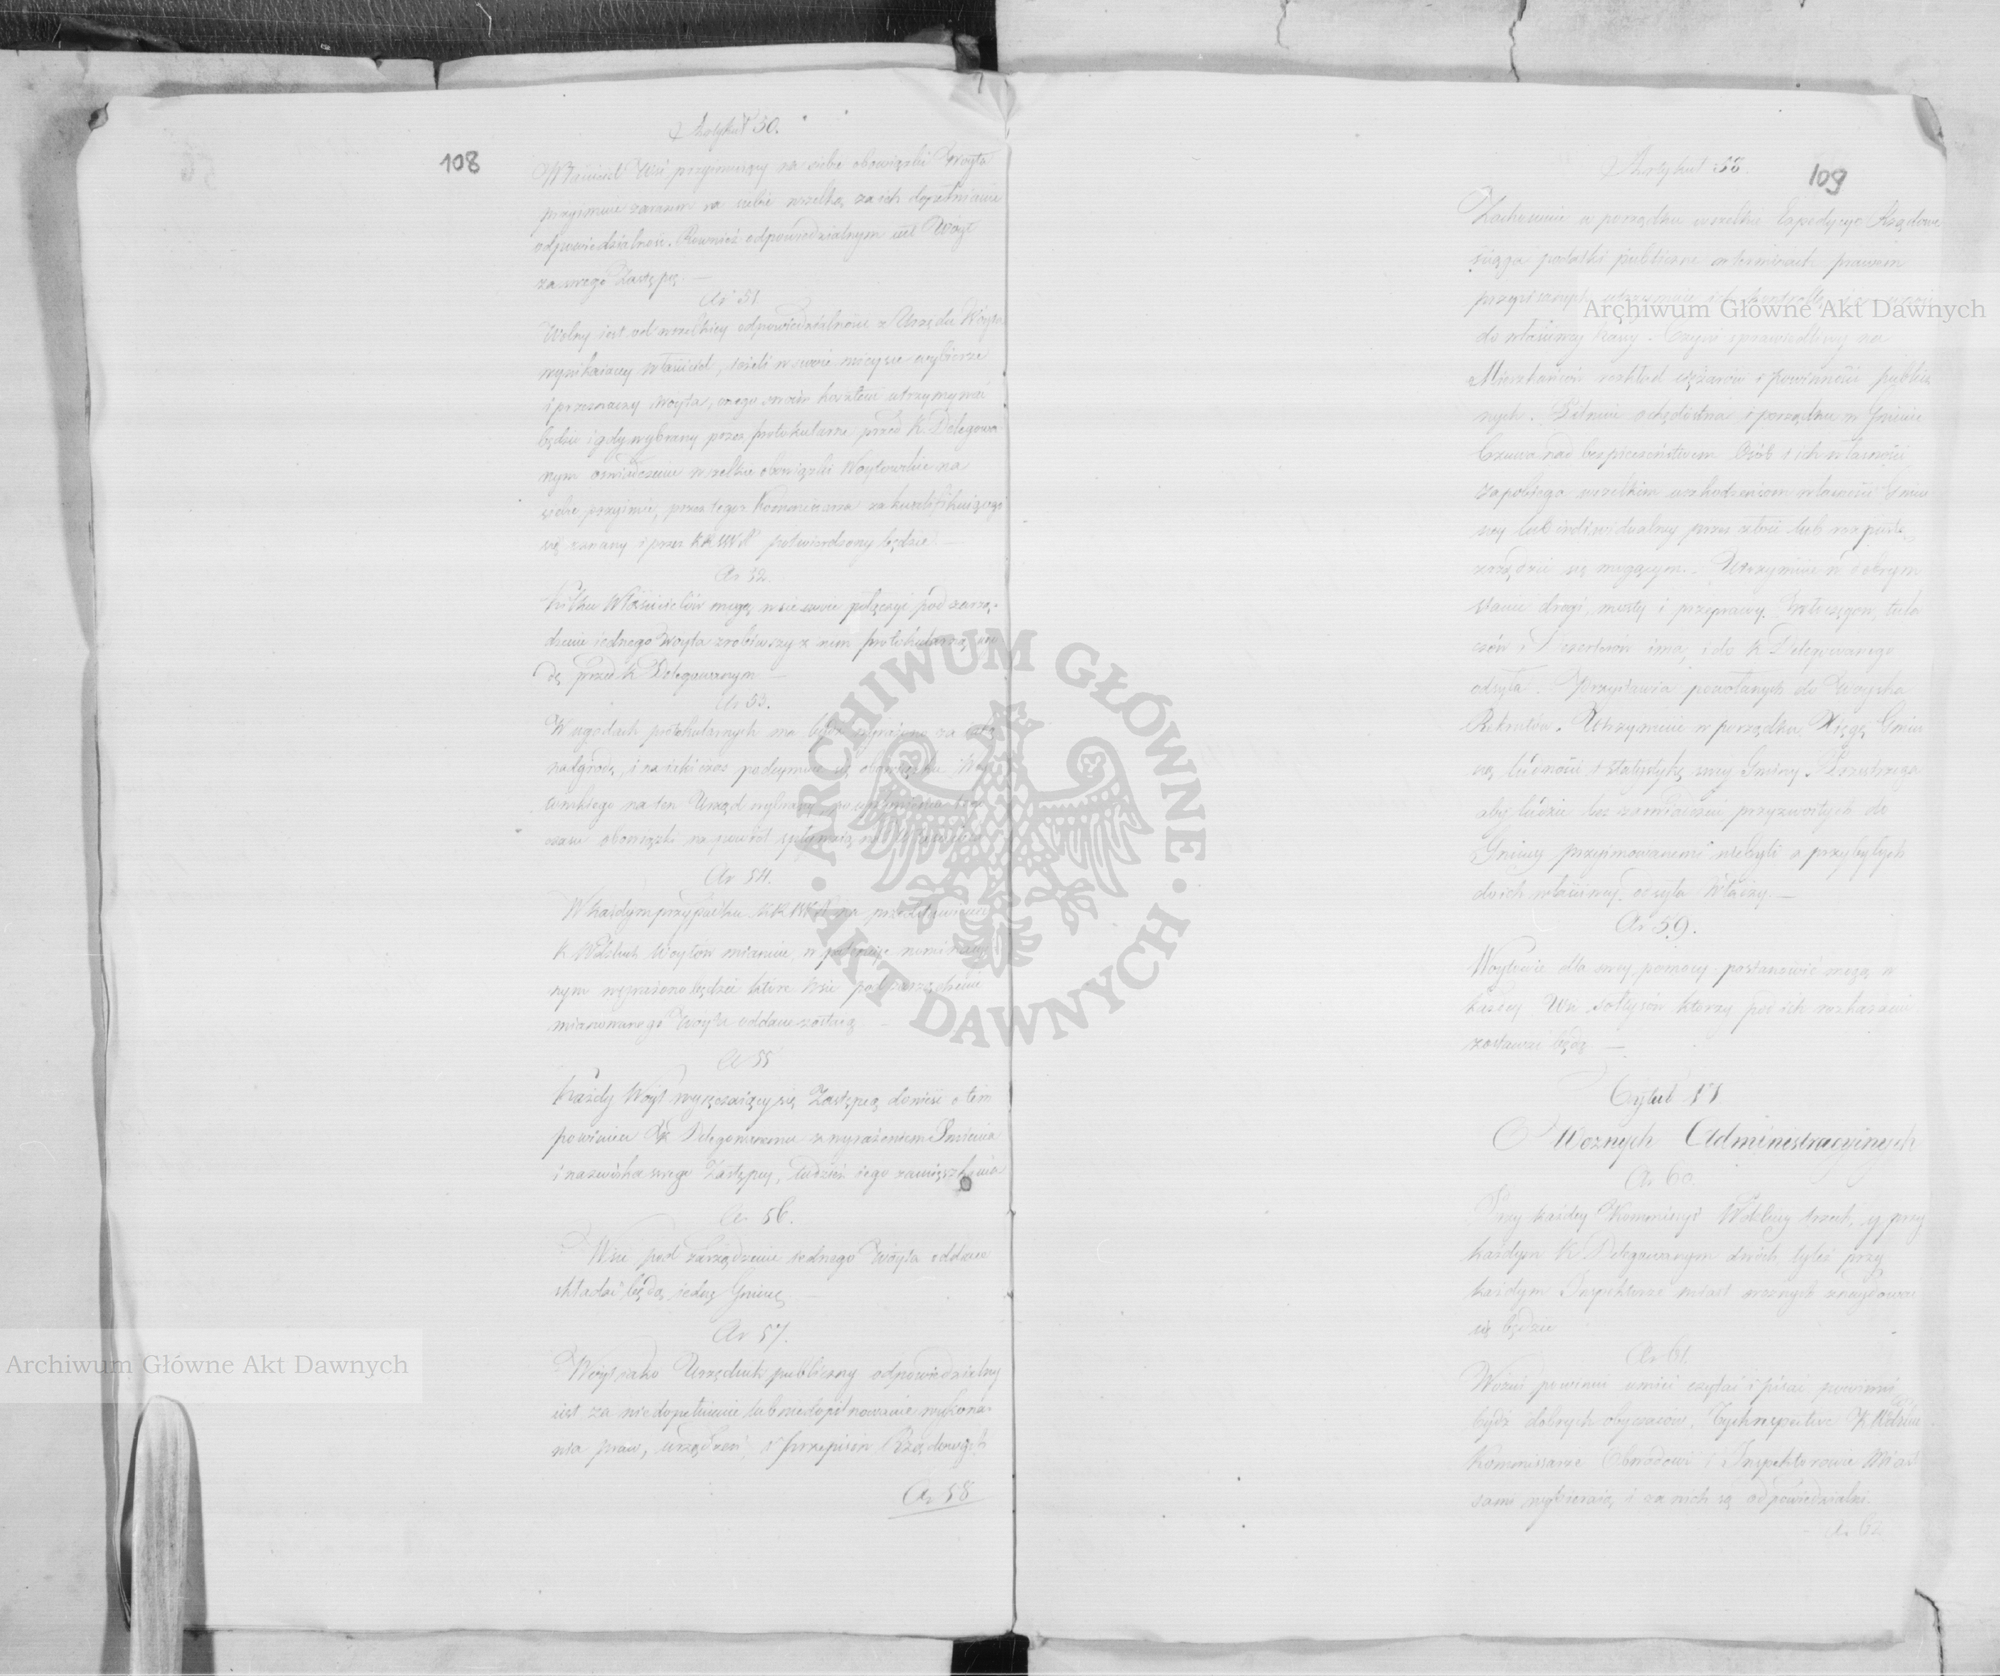 108
Artykuł 50.
Właściciel Wsi przyjmuiący na siebie obowiązki Woyta
przyimuie zarazem na siebie wszelką za ich dopełnianie
odpowiedzialność. Również odpowiedzialnym iest Woyt
za swego Zastępcę. —
Ar 51.
Wolny iest od wszelkiey odpowiedzialności z Urzędu Woyta
wynikaiącey właściciel, ieżeli w swoie mieysce wybierze
i przeznaczy Woyta, czego swoim kosztem utrzymywać
będzie i gdy wybrany przez protokularne przed K. Delegowa
nym oświadczenie wszelkie obowiązki Woytowskie na
siebie przyimie, przez tegoż Kommissarza za kwalifikuiącego
się uznany i przez potwierdzony będzie. —
Ar 52.
Kilku Właścicielów mogą wsie swoie połączyć pod zarzą-
dzenie iednego Woyta zrobiwszy z nim protokularną ugo
dę przed K Delegowanym —
Ar 53.
W ugodach protokularnych ma bydź wyrażono za iaką
nadgrodę, i na iaki czas podeymuie się obowiązku Woy
towskiego na ten Urząd wybrany, po upłynieniu tego
czasu obowiązki na powrót spływaią na
Ar 54.
W każdym przypadku na przedstawienie
K Wdzkich Woytów mianuie, w patencie nominacyi
nym wyrażono będzie które wsie pod zarządzenie
mianowanego Woyta oddane zostaią —
Ar 55
Każdy Woyt wyręczaiący się Zastępcą donieść o tem
powinien K Delegowanemu z wyrażeniem Imienia
i nazwiska swego Zastępcy, tudzież iego zamieszkania
Ar 56.
Wsie pod zarządzenie iednego Woyta oddane
składać będą iedną Gminę. —
Ar 57.
Woyt iako Urzędnik publiczny odpowiedzialny
iest za niedopełnienie lub niedopilnowanie wykona-
nia praw, urządzeń i przepisów Rządowych
Ar 58
109
Artykuł 58.
Zachowuie w porządku wszelkie Expedycye Rządowe
ściąga podatki publiczne w terminach prawem
przepisanych, utrzymuie ich
do właściwey kassy. Czyni sprawiedliwy na
Mieszkańców rozkład ciężarów i powinności publicz
nych. Pilnuie ochędóstwa i porządku w Gminie
Czuwa nad bezpieczeństwem Osób i ich własności
Zapobiega wszelkim uszkodzeniom własności Gmin
ney lub indiwidualney przez
zrządzić się mogącym. Utrzymuie w dobrym
stanie drogi, mosty i przeprawy. Włóczęgów, tuła
czów i Dezerterów ima i do K Delegowanego
odsyła. Przystawia powołanych do Woyska
Rekrutów. Utrzymuie w porządku Księgę Gmin
ną ludności i statystykę swey Gminy. Przestrzega
aby ludzie bez zaświadczeń przyzwoitych do
Gminy przyimowanemi niebyli a przybyłych
do ich właściwey odsyła Władzy. —
Ar 59.
Woytowie dla swey pomocy postanowić mogą w
każdey Wsi sołtysów którzy pod ich rozkazami
zostawać będą —
Tytuł
O Woznych Administracyinych
Ar 60.
Przy każdey Kommissyi Wdzkiey trzech, przy
każdym K Delegowanym dwóch tyleż przy
każdym Inspektorze miast woznych znaydować
się będzie
Ar 61.
Woźni powinni umieć czytać i pisać powinni
bydź dobrych obyczaiów. Tych Wdzkie
Kommissarze Obwodowi i Inspektorowie Miast
sami wybieraią i za nich są odpowiedzialni.
Ar 62
Archiwum Główne Akt Dawnych
Archiwum Główne Akt Dawnych
ARCHIWUM GŁÓWNE
AKT DAWNYCH